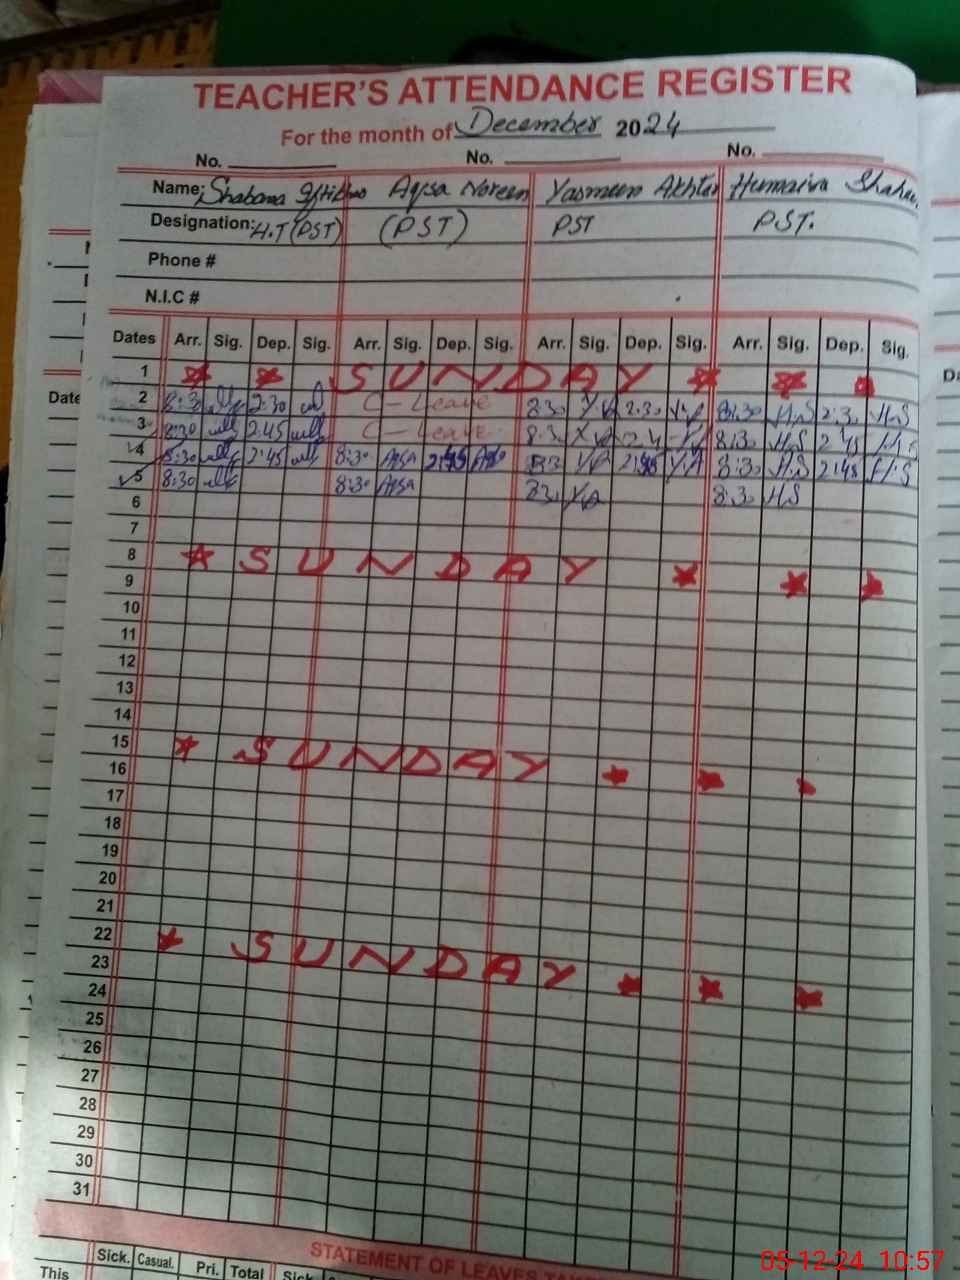 TEACHER'S ATTENDANCE REGISTER
For the month of December 2024
No. No. No.
Name: Shabana Aqsa Noreen Yasmeen Akhtar Humaira
Designation: H.T (PST) (PST) PST PST.
Phone #
N.I.C #
Dates Arr. Sig. Dep. Sig. Arr. Sig. Dep. Sig. Arr. Sig. Dep. Sig. Arr. Sig. Dep. Sig.
1 SUNDAY
2 8:30 2:30 C-Leave 8:30 Y.A 2:30 Y.A 8:30 H.S 2:30 H.S
3 8:30 2:45 C-Leave 8:30 Y.A 8:30 H.S 2:45 H.S
4 8:30 2:45 8:30 Aqsa 2:45 Aqsa 8:30 Y.A 2:45 Y.A 8:30 H.S 2:45 H.S
5 8:30 8:30 Aqsa 8:30 Y.A 8:30 H.S
6
7
8 SUNDAY
9
10
11
12
13
14
15 SUNDAY
16
17
18
19
20
21
22 SUNDAY
23
24
25
26
27
28
29
30
31
STATEMENT OF LEAVES
Sick. Casual. Pri. Total Sick
This
Date
05-12-24 10:57